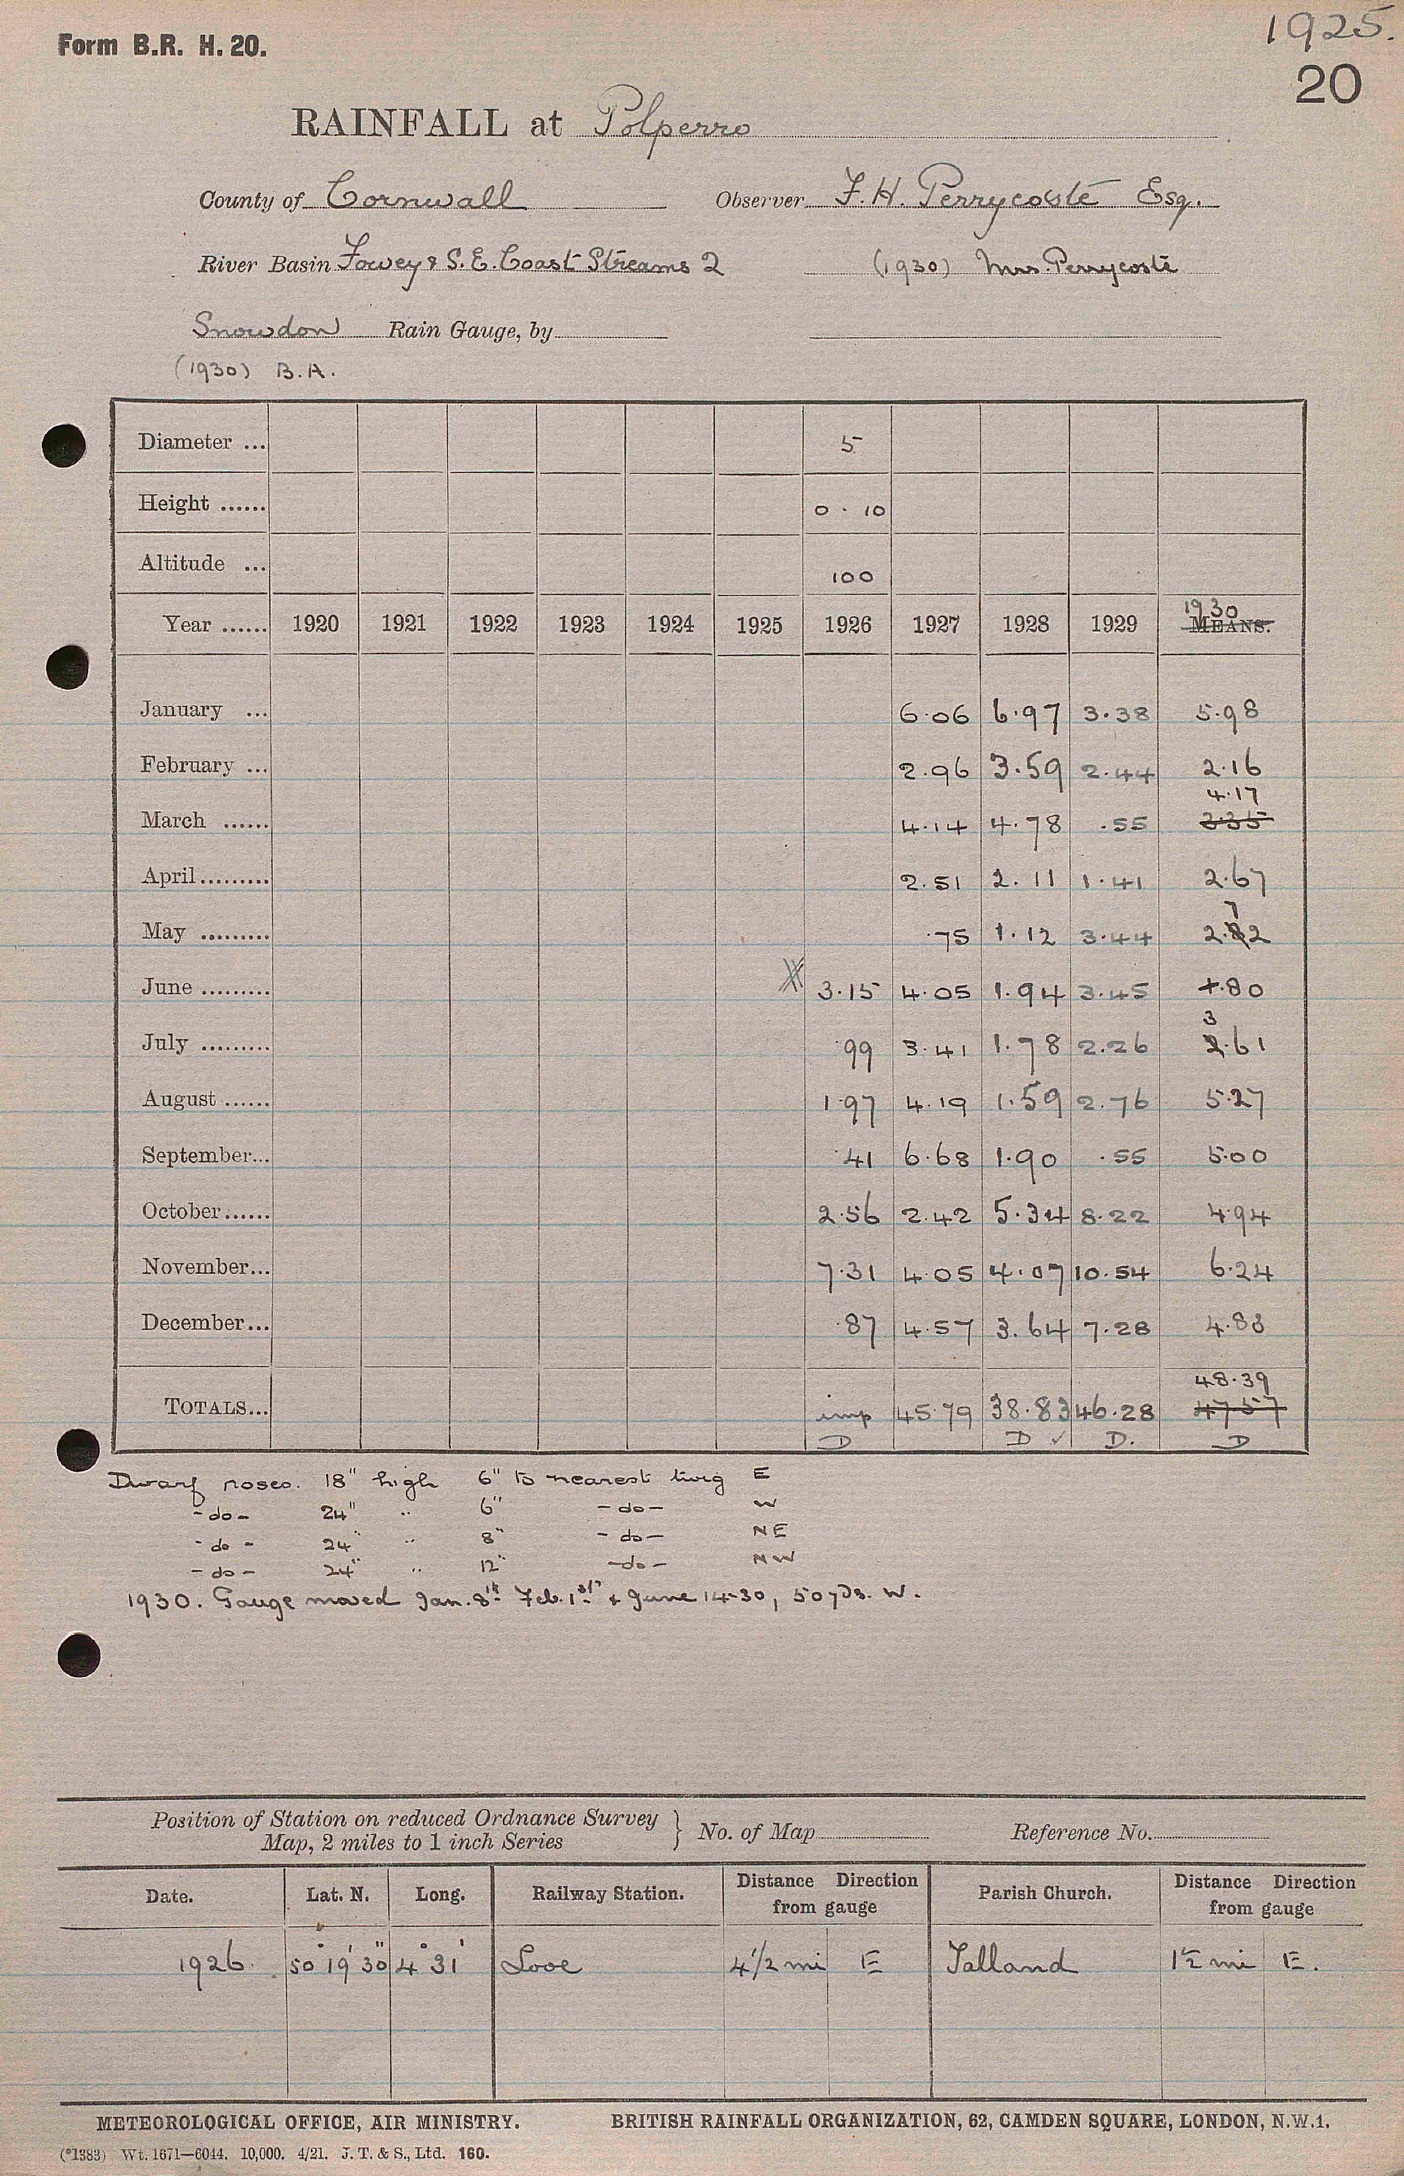 1925.
Form B.R. H. 20.
20
RAINFALL at Polperro
County of Cornwall Observer F. H. Perrycoste Esq.
River Basin Fowey & S.E. Coast Streams 2 (1930) Mrs. Perrycoste
Snowdon Rain Gauge, by
(1930) B.A.
Diameter ... 5
Height ...... 0 · 10
Altitude ... 100
1930
Year ...... 1920 1921 1922 1923 1924 1925 1926 1927 1928 1929 MEANS.
January ... 6.06 6.97 3.38 5.98
February ... 2.96 3.59 2.44 2.16
4.17
March ...... 4.14 4.78 .55 3.35
April......... 2.51 2.11 1.41 2.67
7
May ......... .75 1.12 3.44 2.82
June ......... 3.15 4.05 1.94 3.45 .80
3
July ......... .99 3.41 1.78 2.26 2.61
August ...... 1.97 4.19 1.59 2.76 5.27
September... .41 6.68 1.90 .55 5.00
October...... 2.56 2.42 5.34 8.22 4.94
November... 7.31 4.05 4.07 10.54 6.24
December... .87 4.57 3.64 7.28 4.83
48.39
TOTALS... imp 45.79 38.83 46.28 47.57
D D ✓ D. D
Dwarf roses. 18" high 6" to nearest twig E
-do- 24" " 6" -do- W
-do- 24" " 8" -do- NE
-do- 24" " 12" -do- NW
1930. Gauge moved Jan. 8th Feb. 1st & June 14-30, 50 yds. W.
Position of Station on reduced Ordnance Survey
Map, 2 miles to 1 inch Series } No. of Map Reference No.
Date. Lat. N. Long. Railway Station. Distance Direction from gauge Parish Church. Distance Direction from gauge
1926. 50° 19' 30" 4° 31' Looe 4 1/2 mi E Talland 1 1/2 mi E.
METEOROLOGICAL OFFICE, AIR MINISTRY. BRITISH RAINFALL ORGANIZATION, 62, CAMDEN SQUARE, LONDON, N.W.1.
(*1383) Wt. 1671—6044. 10,000. 4/21. J. T. & S., Ltd. 160.